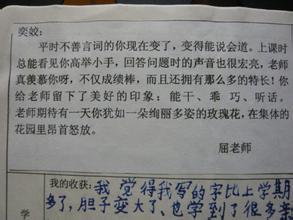 奕姣：
平时不善言词的你现在变了，变得能说会道。上课时
总能看见你高举小手，回答问题时的声音也很宏亮，老师
真羡慕你呀，不仅成绩棒，而且还拥有那么多的特长！你
给老师留下了美好的印象：能干、乖巧、听话。
老师期待有一天你犹如一朵绚丽多姿的玫瑰花，在集体的
花园里昂首怒放。
屈老师
我的收获：我觉得我写的字比上学期
学
多了，胆子变大了、也学到了很多